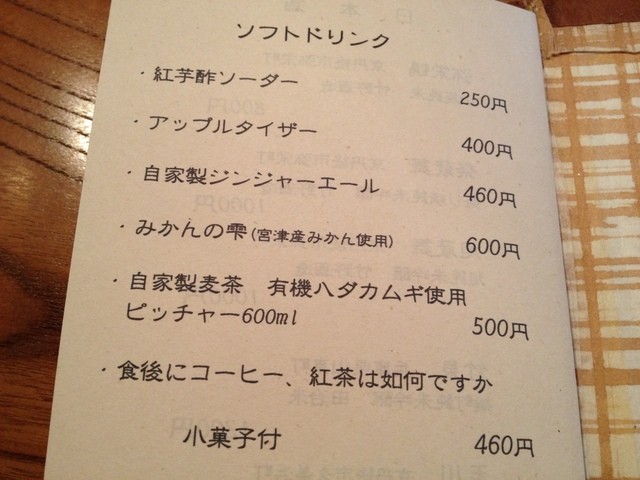 ソフトドリンク
・紅芋酢ソーダー 250円
・アップルタイザー 400円
・自家製ジンジャーエール 460円
・みかんの雫(宮津産みかん使用) 600円
・自家製麦茶 有機ハダカムギ使用
ピッチャー600ml 500円
・食後にコーヒー、紅茶は如何ですか
小菓子付 460円